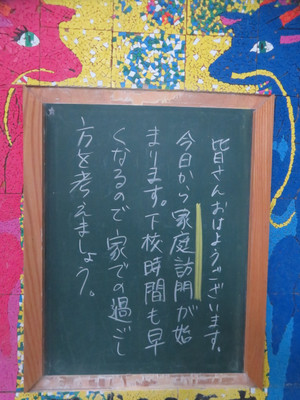 皆さんおはようございます。
今日から家庭訪問が始
まります。下核時間も早
くなるので家での過ごし
方を考えましょう。